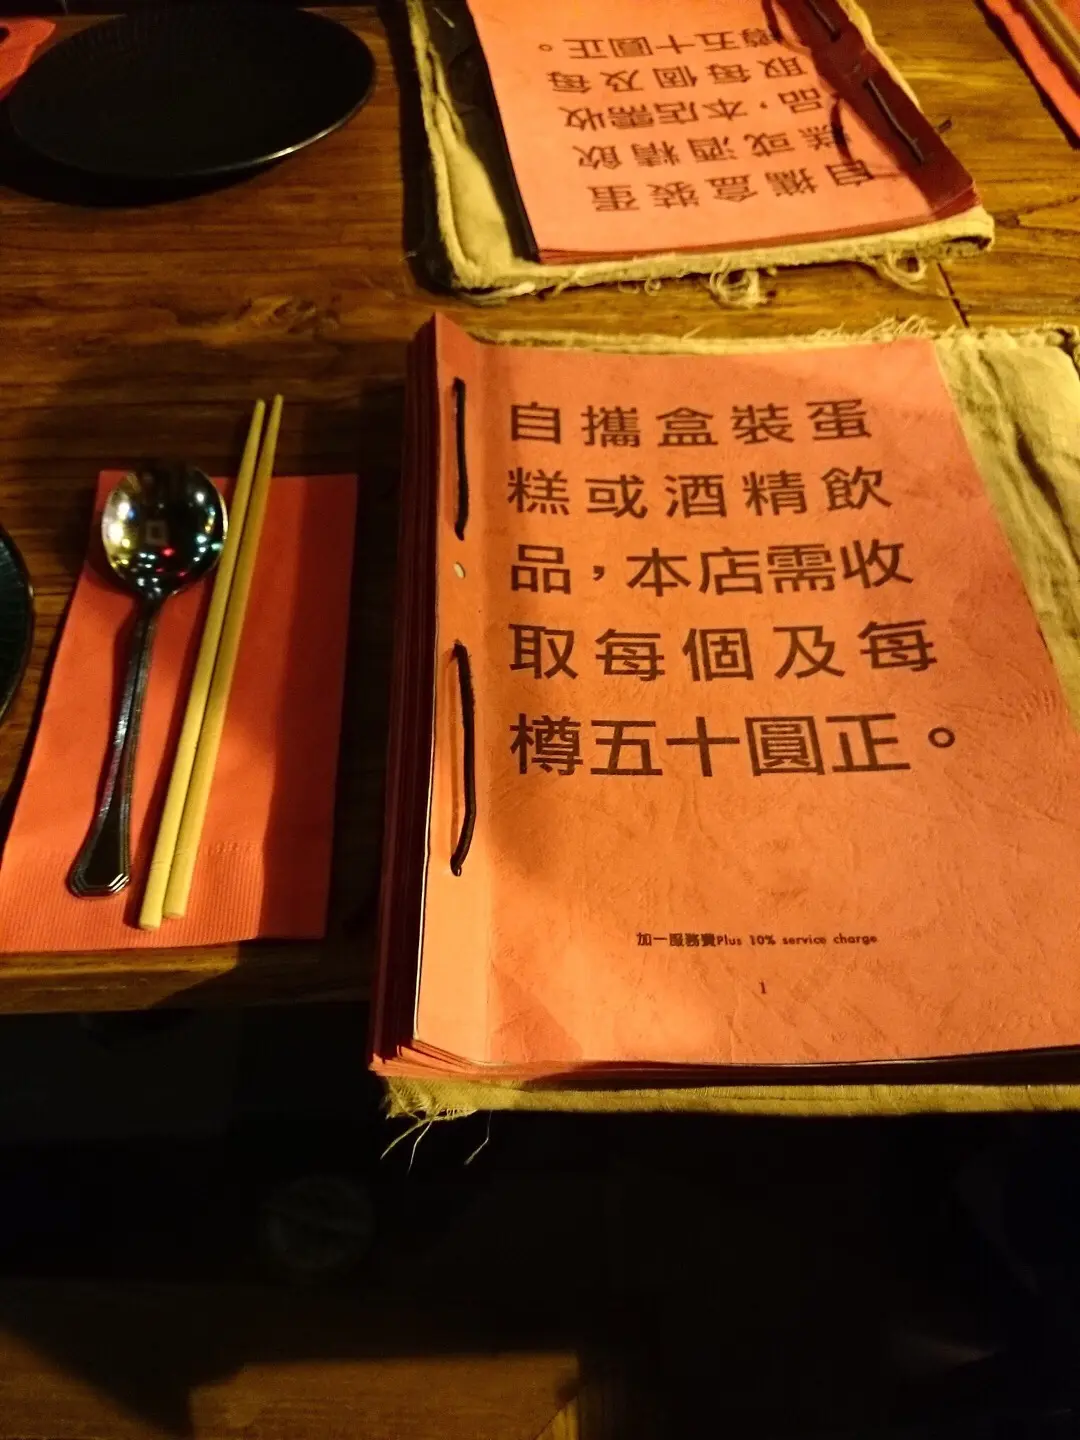 自攜盒裝蛋
糕或酒精飲
品，本店需收
取每個及每
樽五十圓正。
加一服務費Plus 10% service charge
1
自攜盒裝蛋
糕或酒精飲
品，本店需收
取每個及每
樽五十圓正。